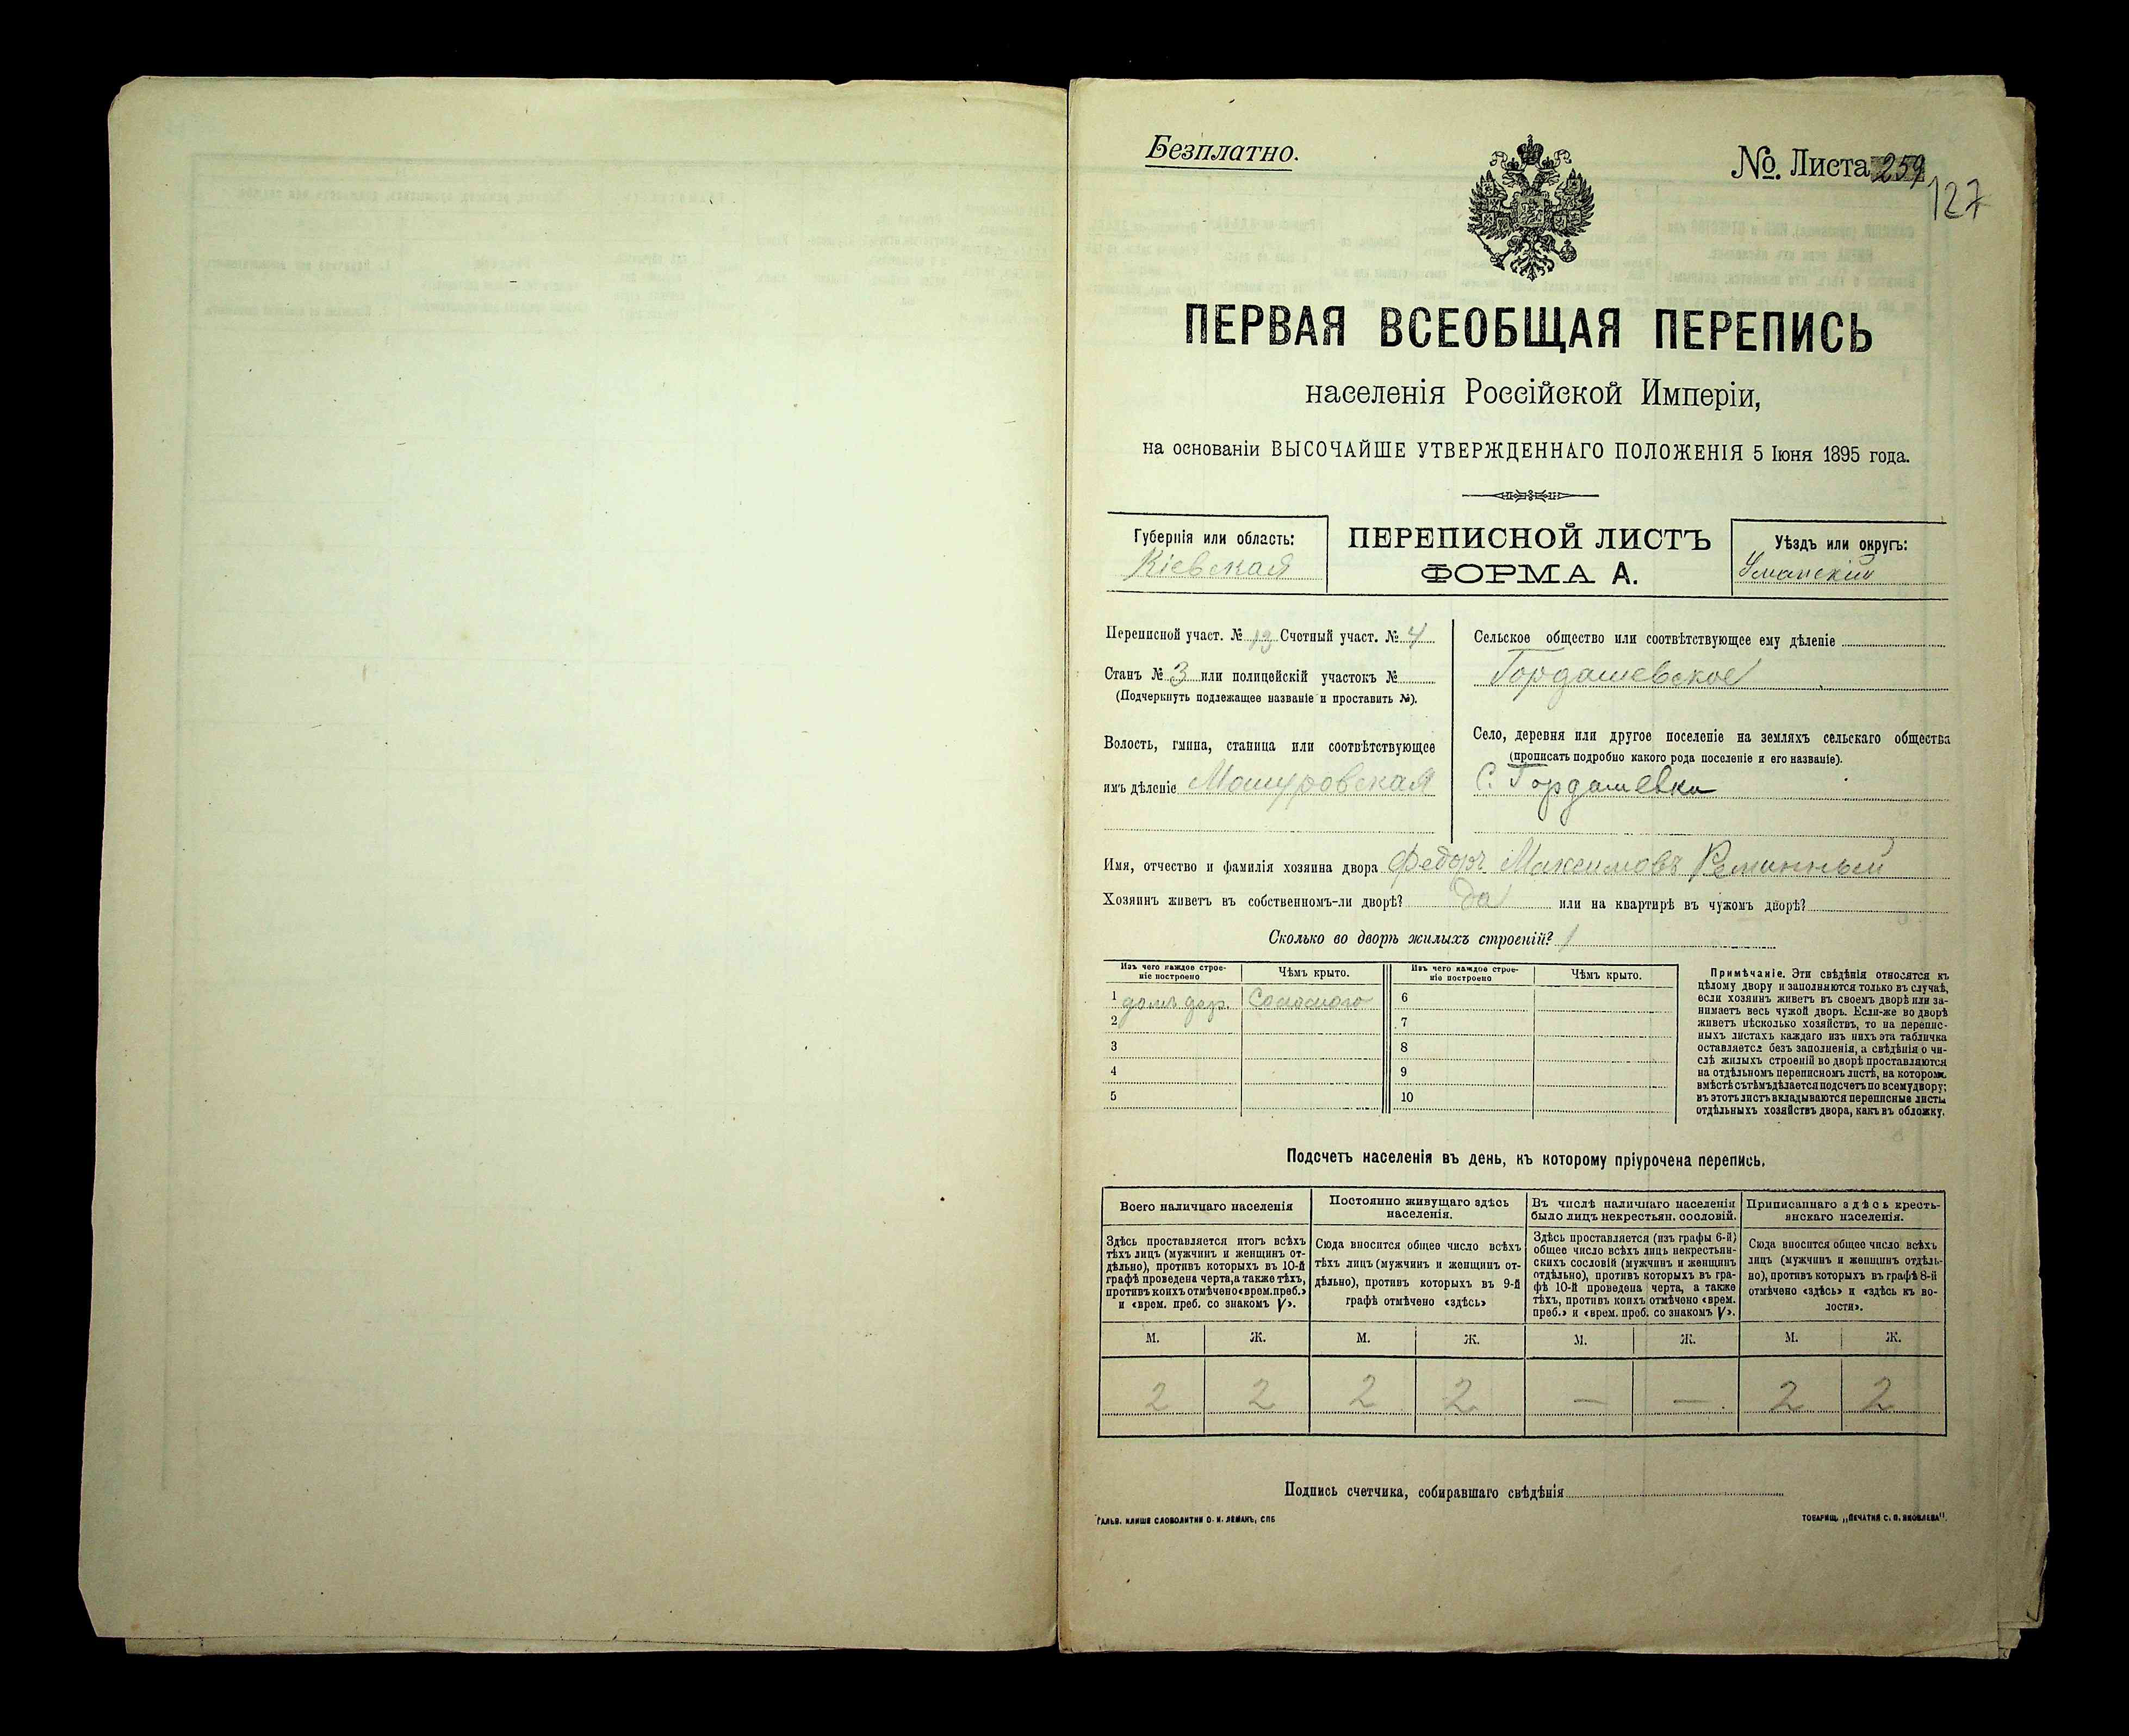 Безплатно.
№. Листа 259
127
ПЕРВАЯ ВСЕОБЩАЯ ПЕРЕПИСЬ
населенія Россійской Имперіи,
на основаніи ВЫСОЧАЙШЕ УТВЕРЖДЕННАГО ПОЛОЖЕНІЯ 5 Іюня 1895 года.
Губернія или область:
Кіевская
ПЕРЕПИСНОЙ ЛИСТЪ
ФОРМА А.
Уѣздъ или округъ:
Уманскій
Переписной участ. № 13 Счетный участ. № 4
Станъ № 3 или полицейскій участокъ №
(Подчеркнуть подлежащее названіе и проставить №).
Волость, гмина, станица или соотвѣтствующее
имъ дѣленіе Машуровская
Сельское общество или соотвѣтствующее ему дѣленіе
Гордашевское
Село, деревня или другое поселеніе на земляхъ сельскаго общества
(прописать подробно какого рода поселеніе и его названіе).
С. Гордашевка
Имя, отчество и фамилія хозяина двора Федоръ Максимовъ
Хозяинъ живетъ въ собственномъ-ли дворѣ? да или на квартирѣ въ чужомъ дворѣ?
Сколько во дворѣ жилыхъ строеній? 1
Изъ чего каждое строе-
ніе построено
Чѣмъ крыто.
Изъ чего каждое строе-
ніе построено
Чѣмъ крыто.
1 домъ дер. Соломою
2
3
4
5
6
7
8
9
10
Примѣчаніе. Эти свѣдѣнія относятся къ
цѣлому двору и заполняются только въ случаѣ,
если хозяинъ живетъ въ своемъ дворѣ или за-
нимаетъ весь чужой дворъ. Если-же во дворѣ
живетъ нѣсколько хозяйствъ, то на перепис-
ныхъ листахъ каждаго изъ нихъ эта табличка
оставляется безъ заполненія, а свѣдѣнія о чи-
слѣ жилыхъ строеній во дворѣ проставляются
на отдѣльномъ переписномъ листѣ, на которомъ
вмѣстѣ съ тѣмъ дѣлается подсчетъ по всему двору;
въ этотъ листъ вкладываются переписные листы
отдѣльныхъ хозяйствъ двора, какъ въ обложку.
Подсчетъ населенія въ день, къ которому пріурочена перепись.
Всего наличнаго населенія
Здѣсь проставляется итогъ всѣхъ
тѣхъ лицъ (мужчинъ и женщинъ от-
дѣльно), противъ которыхъ въ 10-й
графѣ проведена черта, а также тѣхъ,
противъ коихъ отмѣчено «врем. преб.»
и «врем. преб. со знакомъ V».
Постоянно живущаго здѣсь
населенія.
Сюда вносится общее число всѣхъ
тѣхъ лицъ (мужчинъ и женщинъ от-
дѣльно), противъ которыхъ въ 9-й
графѣ отмѣчено «здѣсь»
Въ числѣ наличнаго населенія
было лицъ некрестьян. сословій.
Здѣсь проставляется (изъ графы 6-й)
общее число всѣхъ лицъ некрестьян-
скихъ сословій (мужчинъ и женщинъ
отдѣльно), противъ которыхъ въ гра-
фѣ 10-й проведена черта, а также
тѣхъ, противъ коихъ отмѣчено «врем.
преб.» и «врем. преб. со знакомъ V».
Приписаннаго здѣсь кресть-
янскаго населенія.
Сюда вносится общее число всѣхъ
лицъ (мужчинъ и женщинъ отдѣль-
но), противъ которыхъ въ графѣ 8-й
отмѣчено «здѣсь» и «здѣсь къ во-
лости».
М. Ж. М. Ж. М. Ж. М. Ж.
2 2 2 2 — — 2 2
Подпись счетчика, собиравшаго свѣдѣнія
ГАЛЬВ. КЛИШЕ СЛОВОЛИТНИ О. И. ЛЕМАНЪ, СПБ
ТОВАРИЩ. „ПЕЧАТНЯ С. П. ЯКОВЛЕВА".